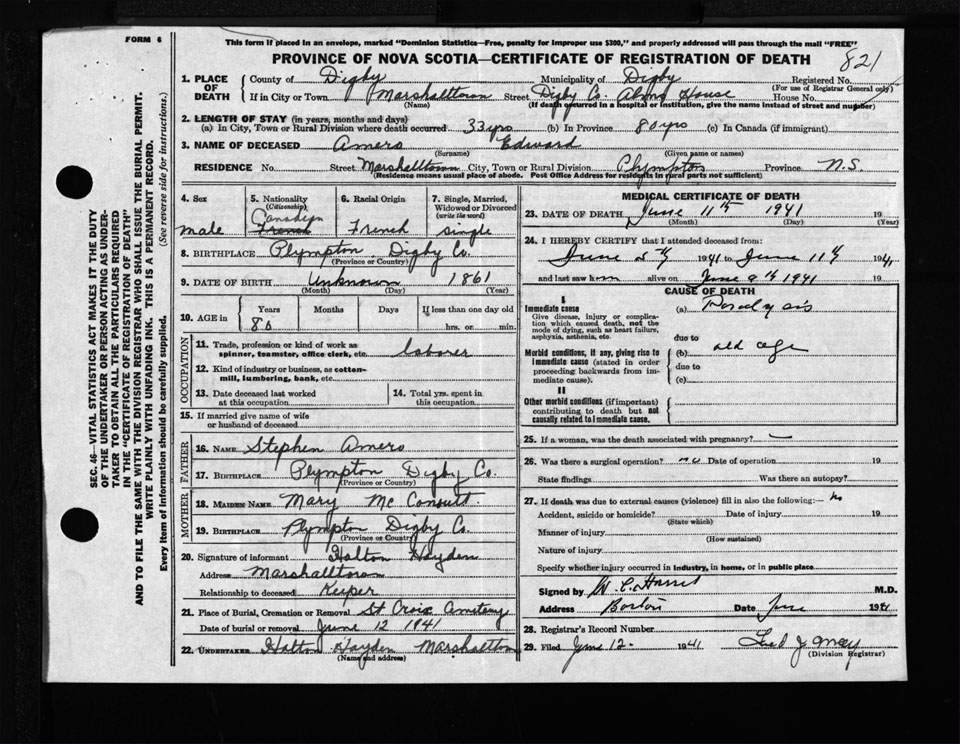 FORM 6
This form if placed in an envelope, marked "Dominion Statistics—Free, penalty for improper use $300," and properly addressed will pass through the mail "FREE"
PROVINCE OF NOVA SCOTIA—CERTIFICATE OF REGISTRATION OF DEATH
821
1. PLACE OF DEATH
County of Digby Municipality of Digby Registered No.
(For use of Registrar General only)
If in City or Town Marshalltown Street Digby Co. Alms House House No.
(Name) (If death occurred in a hospital or institution, give the name instead of street and number)
2. LENGTH OF STAY (in years, months and days)
(a) In City, Town or Rural Division where death occurred 33 yrs (b) In Province 80 yrs (c) In Canada (if immigrant)
3. NAME OF DECEASED Amero Edward
(Surname) (Given name or names)
RESIDENCE No. Street Marshalltown City, Town or Rural Division Plympton Province N.S.
(Residence means usual place of abode. Post Office Address for residents in rural parts not sufficient)
4. Sex
male
5. Nationality
(Citizenship)
Canadien
French
6. Racial Origin
French
7. Single, Married, Widowed or Divorced
(write the word)
single
8. BIRTHPLACE Plympton Digby Co.
(Province or Country)
9. DATE OF BIRTH Unknown 1861
(Month) (Day) (Year)
10. AGE in
Years Months Days If less than one day old
80 hrs. or min.
OCCUPATION
11. Trade, profession or kind of work as
spinner, teamster, office clerk, etc. laborer
12. Kind of industry or business, as cotton-
mill, lumbering, bank, etc.
13. Date deceased last worked
at this occupation
14. Total yrs. spent in
this occupation
15. If married give name of wife
or husband of deceased
FATHER
16. NAME Stephen Amero
17. BIRTHPLACE Plympton Digby Co.
(Province or Country)
MOTHER
18. MAIDEN NAME Mary Mc
19. BIRTHPLACE Plympton Digby Co.
(Province or Country)
20. Signature of informant Halton Hayden
Address Marshalltown
Relationship to deceased Keeper
21. Place of Burial, Cremation or Removal St Croix Cemetery
Date of burial or removal June 12 1941
22. UNDERTAKER Halton Hayden Marshalltown
(Name and address)
MEDICAL CERTIFICATE OF DEATH
23. DATE OF DEATH June 11th 1941 19
(Month) (Day) (Year)
24. I HEREBY CERTIFY that I attended deceased from:
June 5th 1941 to June 11th 1941
and last saw him alive on June 9th 1941
CAUSE OF DEATH
I
Immediate cause
Give disease, injury or complica-
tion which caused death, not the
mode of dying, such as heart failure,
asphyxia, asthenia, etc.
(a) Paralysis
due to
Morbid conditions, if any, giving rise to
immediate cause (stated in order
proceeding backwards from im-
mediate cause).
(b) old age
due to
(c)
II
Other morbid conditions (if important)
contributing to death but not
causally related to immediate cause.
25. If a woman, was the death associated with pregnancy?
26. Was there a surgical operation? no Date of operation 19
State findings Was there an autopsy?
27. If death was due to external causes (violence) fill in also the following:— No
Accident, suicide or homicide? Date of injury 19
(State which)
Manner of injury
(How sustained)
Nature of injury
Specify whether injury occurred in industry, in home, or in public place
Signed by M.D.
Address Date June 1941
28. Registrar's Record Number
29. Filed June 12- 1941
(Division Registrar)
SEC. 46—VITAL STATISTICS ACT MAKES IT THE DUTY
OF THE UNDERTAKER OR PERSON ACTING AS UNDER-
TAKER TO OBTAIN ALL THE PARTICULARS REQUIRED
IN THE "CERTIFICATE OF REGISTRATION OF DEATH"
AND TO FILE THE SAME WITH THE DIVISION REGISTRAR WHO SHALL ISSUE THE BURIAL PERMIT.
WRITE PLAINLY WITH UNFADING INK. THIS IS A PERMANENT RECORD.
Every item of information should be carefully supplied. (See reverse side for instructions.)